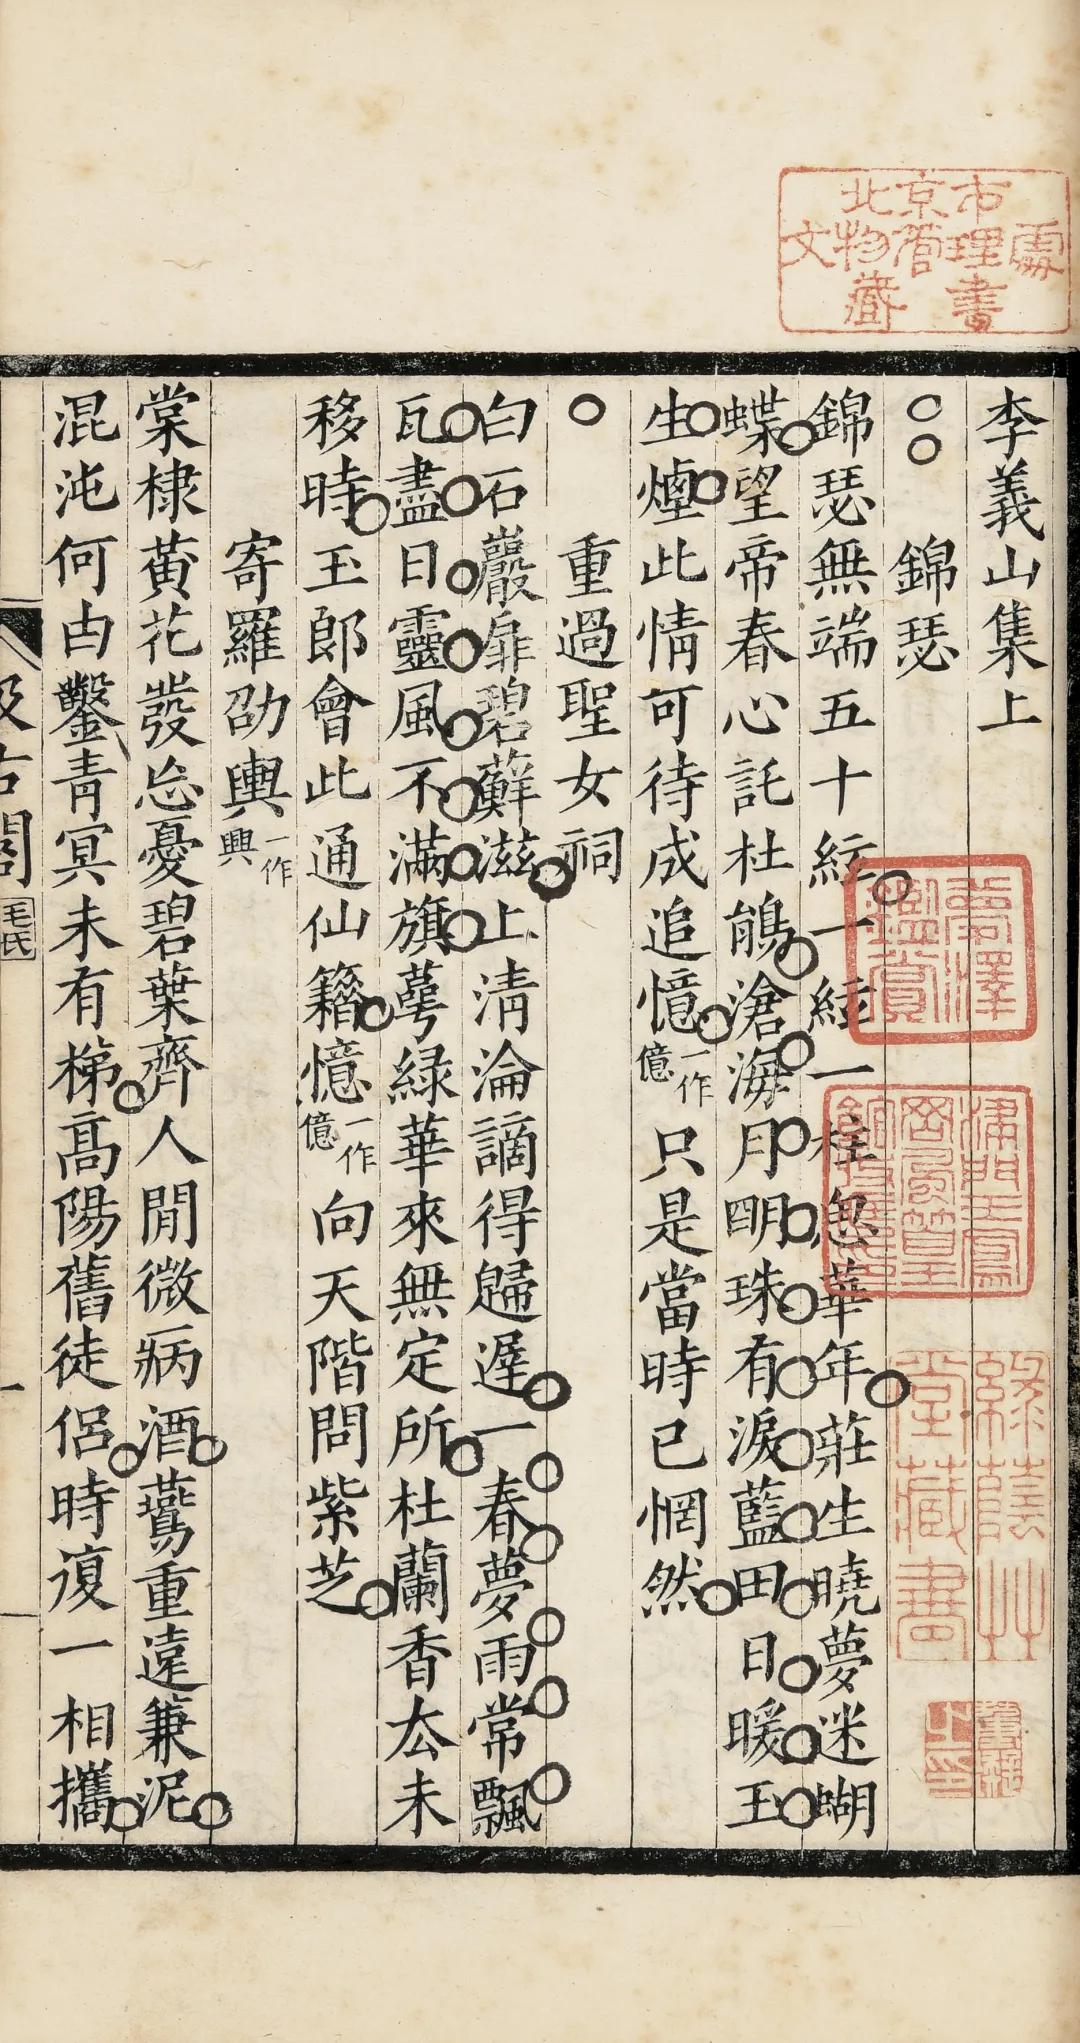 北京市
文物管理處
藏書
李義山集上
錦瑟
錦瑟無端五十絃一絃一柱思華年莊生曉夢迷蝴
蝶望帝春心託杜鵑滄海月明珠有淚藍田日暖玉
生煙此情可待成追憶一作億只是當時已惘然
重過聖女祠
白石巖扉碧蘚滋上清淪謫得歸遲一春夢雨常飄
瓦盡日靈風不滿旗萼綠華來無定所杜蘭香去未
移時玉郎會此通仙籍憶一作億向天階問紫芝
寄羅劭輿一作興
棠棣黃花發忘憂碧葉齊人閒微病酒鷰重遠兼泥
混沌何由鑿青冥未有梯高陽舊徒侶時復一相攜
汲古閣
毛氏
一
夢澤
鑑賞
綠蔭艸
堂藏書